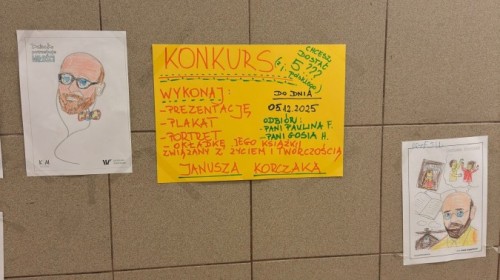 KONKURS
CHCESZ
DOSTAĆ
5 ???
WYKONAJ:
-PREZENTACJĘ
-PLAKAT
-PORTRET
-OKŁADKĘ JEGO KSIĄŻKI
ZWIĄZANY Z ŻYCIEM I TWÓRCZOŚCIĄ
JANUSZA KORCZAKA
DO DNIA
05.12.2025
ODBIÓR:
-PANI PAULINA F.
-PANI GOSIA H.